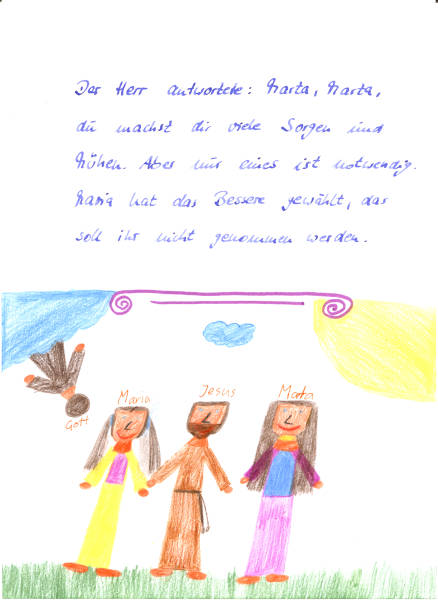 Der Herr antwortete: Marta, Marta,
du machst dir viele Sorgen und
Mühen. Aber nur eines ist notwendig.
Maria hat das Bessere gewählt, das
soll ihr nicht genommen werden.
Gott
Maria
Jesus
Marta